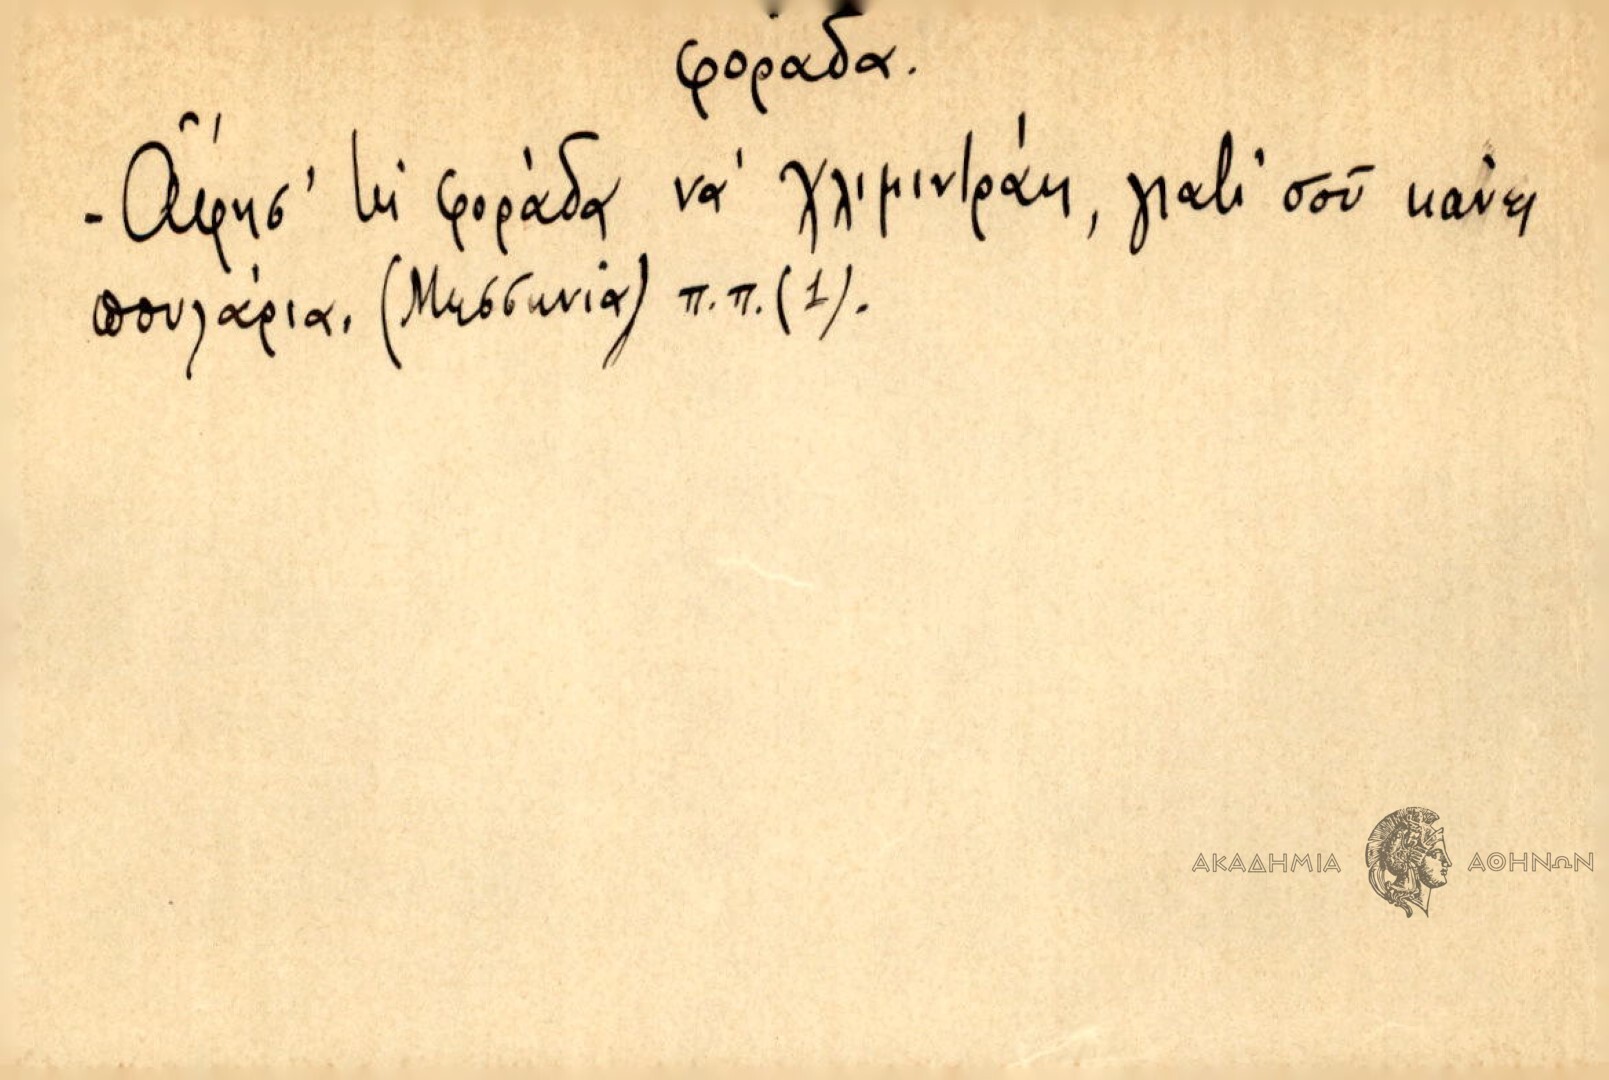 φοράδα.
- Ἄφησ' τὴ φοράδα νὰ χλιμιντράη, γιατὶ σοῦ κάνει
πουλάρια. (Μεσσηνία) π.π. (1).
ΑΚΑΔΗΜΙΑ ΑΘΗΝΩΝ